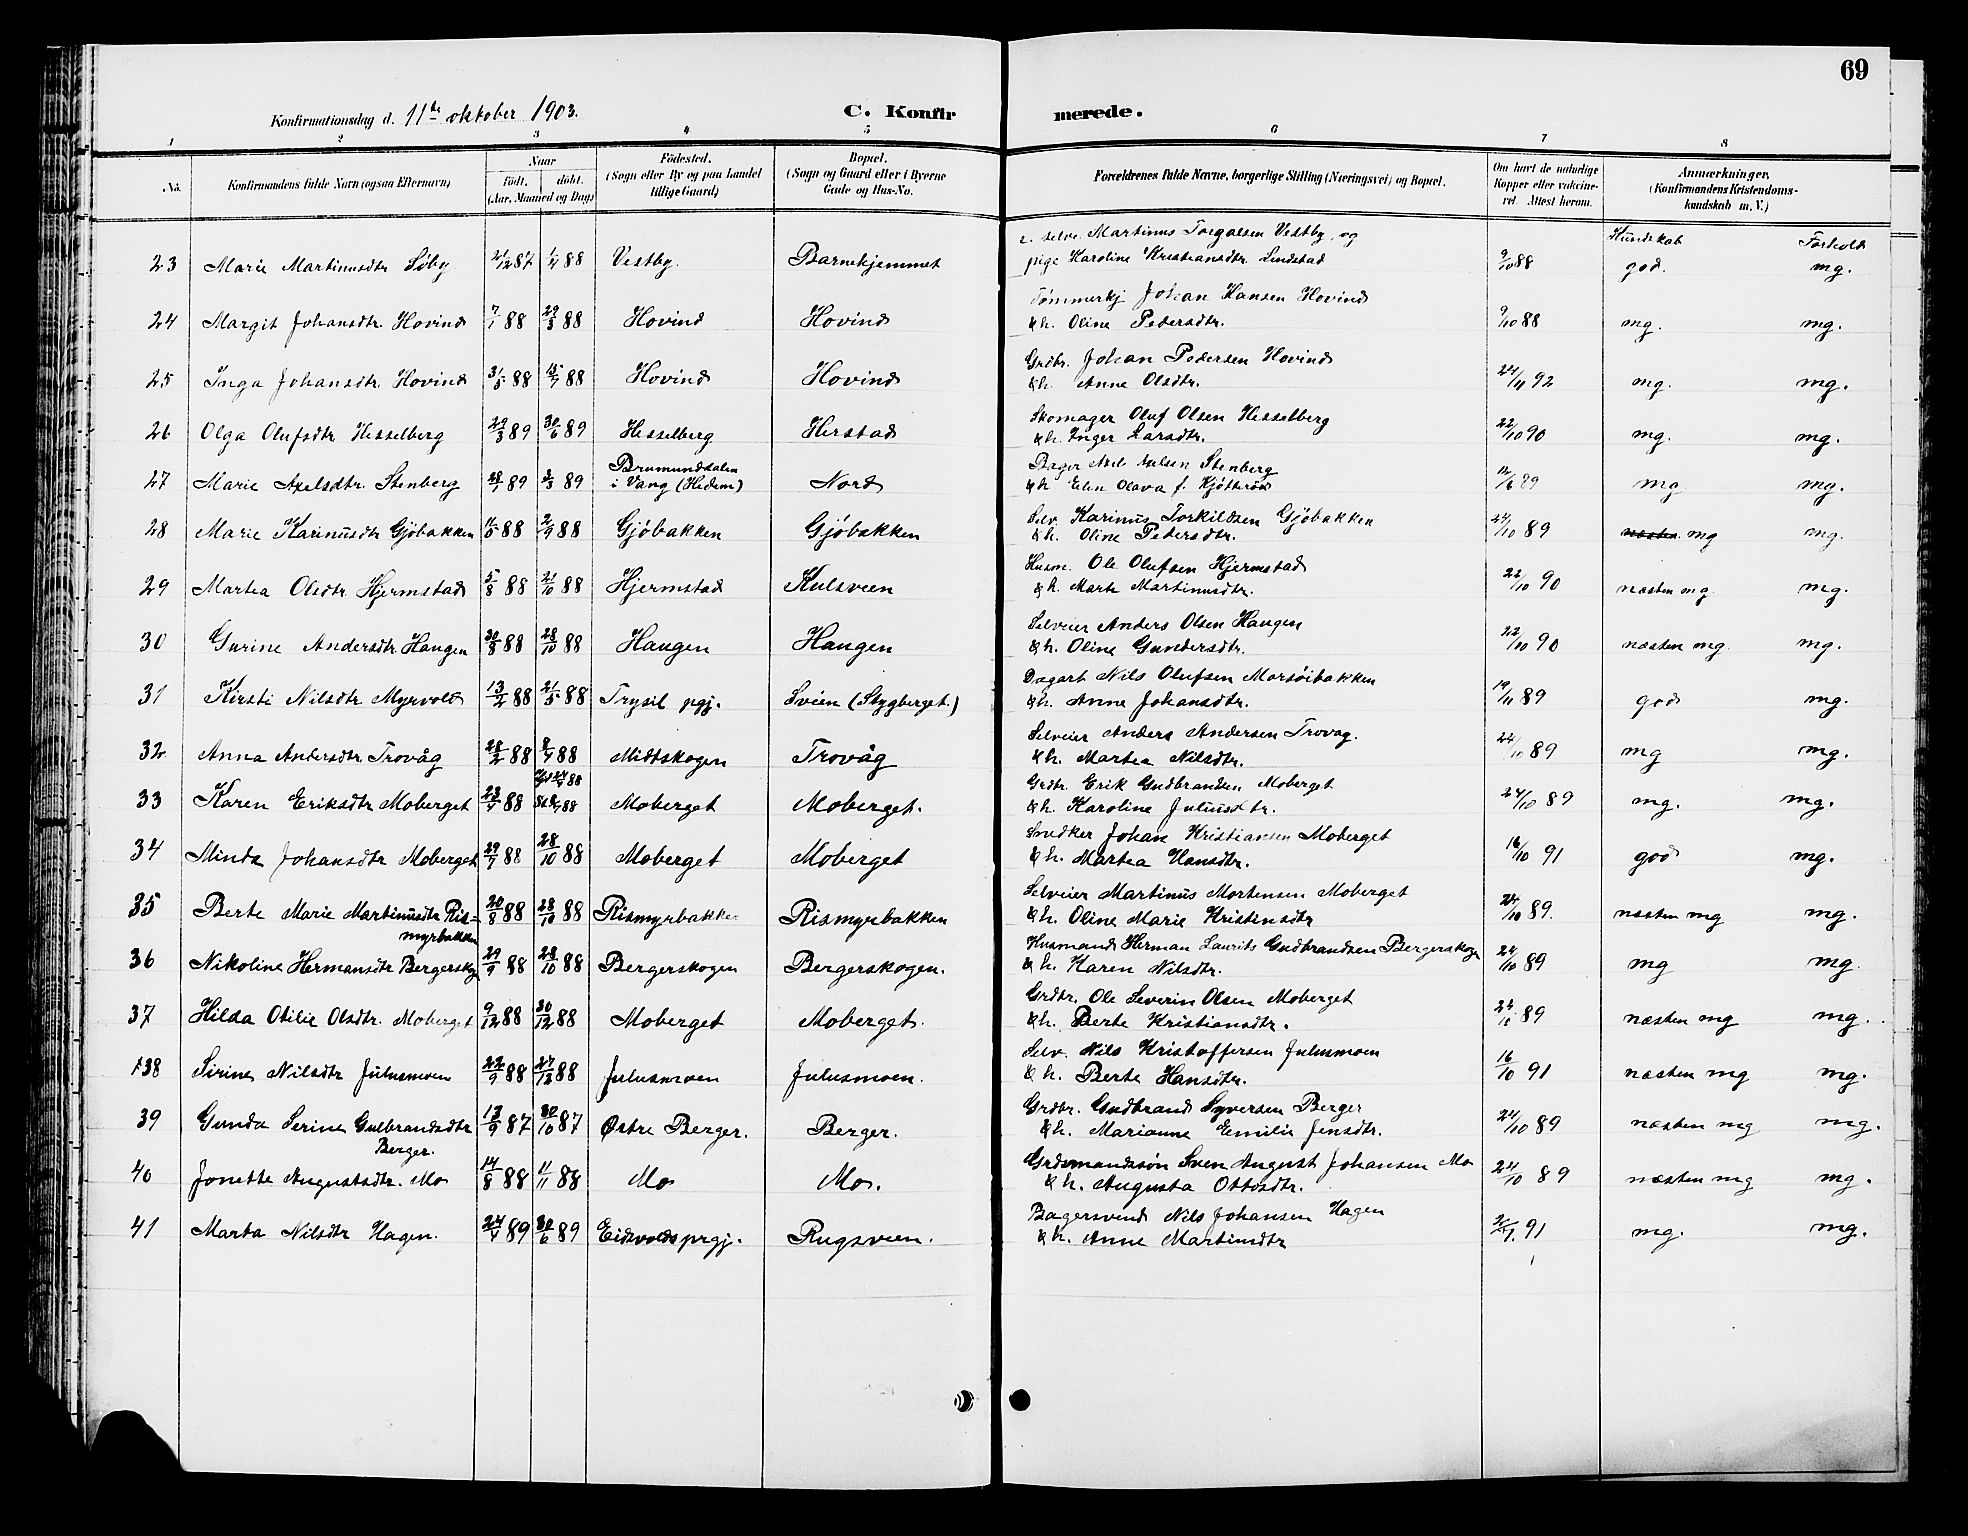 69
Konfirmationsdag d. 11te oktober 1903. C. Konfirmerede.
1 2 3 4 5 6 7 8
No. Konfirmandens fulde Navn (ogsaa Efternavn) Naar Födt. döbt. (Aar, Maaned og Dag) Födested. (Sogn eller By og paa Landet tillige Gaard) Bopæl. (Sogn og Gaard eller i Byerne Gade og Hus-No. Forældrenes fulde Navne, borgerlige Stilling (Næringsvei) og Bopæl. Om havt de naturlige Kopper eller vakcineret. Attest herom. Anmærkninger. (Konfirmandens Kristendomskundskab m. V.)
Kundskab Forhold
23 Marie Martinusdtr Löby 21/12 87 1/4 88 Vestby. Barnehjemmet Martinus Torgalsen Vestby, og
pige Karoline Kristiansdtr. Lindstad 9/10 88 god. mg.
24 Margit Johansdtr. Hovind 7/1 88 29/3 88 Hovind Hovind Tömmerkj Johan Hansen Hovind
& h. Oline Pedersdtr. 9/10 88 mg. mg.
25 Inga Johansdtr. Hovind 31/5 88 15/7 88 Hovind Hovind Grdbr. Johan Pedersen Hovind
& h. Anne Olsdtr. 24/11 92 mg. mg.
26 Olga Olufsdtr Hesselberg 29/3 89 30/6 89 Hesselberg Herstad Skomager Oluf Olsen Hesselberg
& h. Inger Larsdtr. 22/10 90 mg. mg.
27 Marie Axelsdtr. Stenberg 89 3/3 89 Brumunddalen i Vang (Hedem) Nord Bager Axel Axelsen Stenberg
& h Elen Olava f. 12/6 89 mg mg.
28 Marie Karinusdtr Gjöbakken 11/5 88 2/9 88 Gjöbakken Gjöbakken Selv. Karinus Torkildsen Gjöbakken
& h. Oline Pedersdtr. 24/10 89 næsten mg mg.
29 Martea Olsdtr Hjermstad 5/8 88 21/10 88 Hjermstad Kulsveen Husm. Ole Olufsen Hjermstad
& h. Marte Martinusdtr. 22/10 90 næsten mg. mg.
30 Gurine Andersdtr. Haugen 30/8 88 28/10 88 Haugen Haugen Selveier Anders Olsen Haugen
& h. Oline Gundersdtr. 22/10 90 næsten mg. mg.
31 Kirsti Nilsdtr Myrvold 13/2 88 21/5 88 Trysil pgj. Sveen (Stygberget.) Dagarb Nils Olufsen Morsöibakken
& h. Anne Johansdtr. 19/11 89 god mg.
32 Anna Andersdtr Trovåg 28/2 88 8/4 88 Midtskogen Trovåg Selveier Anders Andersen Trovag.
& h. Martea Nilsdtr. 24/10 89 mg mg.
33 Karen Eriksdtr Moberget 23/4 88 88 88 Moberget Moberget. Grdbr. Erik Gudbrandsen Moberget
& h. Karoline Juliusdtr. 24/10 89 mg. mg.
34 Minda Johansdtr Moberget 29/7 88 28/10 88 Moberget Moberget Snedker Johan Kristiansen Moberget
& h. Martea Hansdtr. 16/10 91 god mg.
35 Berte Marie Martinusdtr Rismyrbakken 20/8 88 28/10 88 Rismyrbakken Rismyrbakken Selveier Martinus Mortensen Moberget
& h. Oline Marie Kristinsdtr 24/10 89. næsten mg mg.
36 Nikoline Hermansdtr Bergerskog 21/9 88 28/10 88 Bergerskogen Bergerskogen. Husmand Herman Laurits Gudbrandsen Bergerskogn
& h. Karen Nilsdtr. 24/10 89 mg mg.
37 Hilda Otilie Olsdtr. Moberget 9/12 88 30/12 88 Moberget Moberget. Grdbr. Ole Severin Olsen Moberget
& h. Berte Kristiansdtr. 89 næsten mg mg.
38 Sirine Nilsdtr Julusmoen 22/9 88 88 Julusmoen Julusmoen. Selv. Nils Kristoffersen Julusmoen
& h. Berte Hansdtr. 16/10 91 næsten mg mg.
39 Gunda Serine Gulbrandsdtr Berger. 13/9 87 30/10 87 Østre Berger. Berger. Grdbr. Gudbrand Syversen Berger
& h. Marianne Emilie Jensdtr. 24/10 89 næsten mg mg.
40 Jonette Augustadtr. Mo 14/8 88 11/11 88 Mo Mo. Grdsmandssön Sven August Johansen Mo
& h. Augusta Ottosdtr. 24/10 89 næsten mg mg.
41 Marta Nilsdtr Hagen. 24/4 89 30/6 89 Eidsvolds prgj. Rugsveen. Bagersvend Nils Johansen Hagen
& h. Anne Martinsdtr 91 mg. mg.